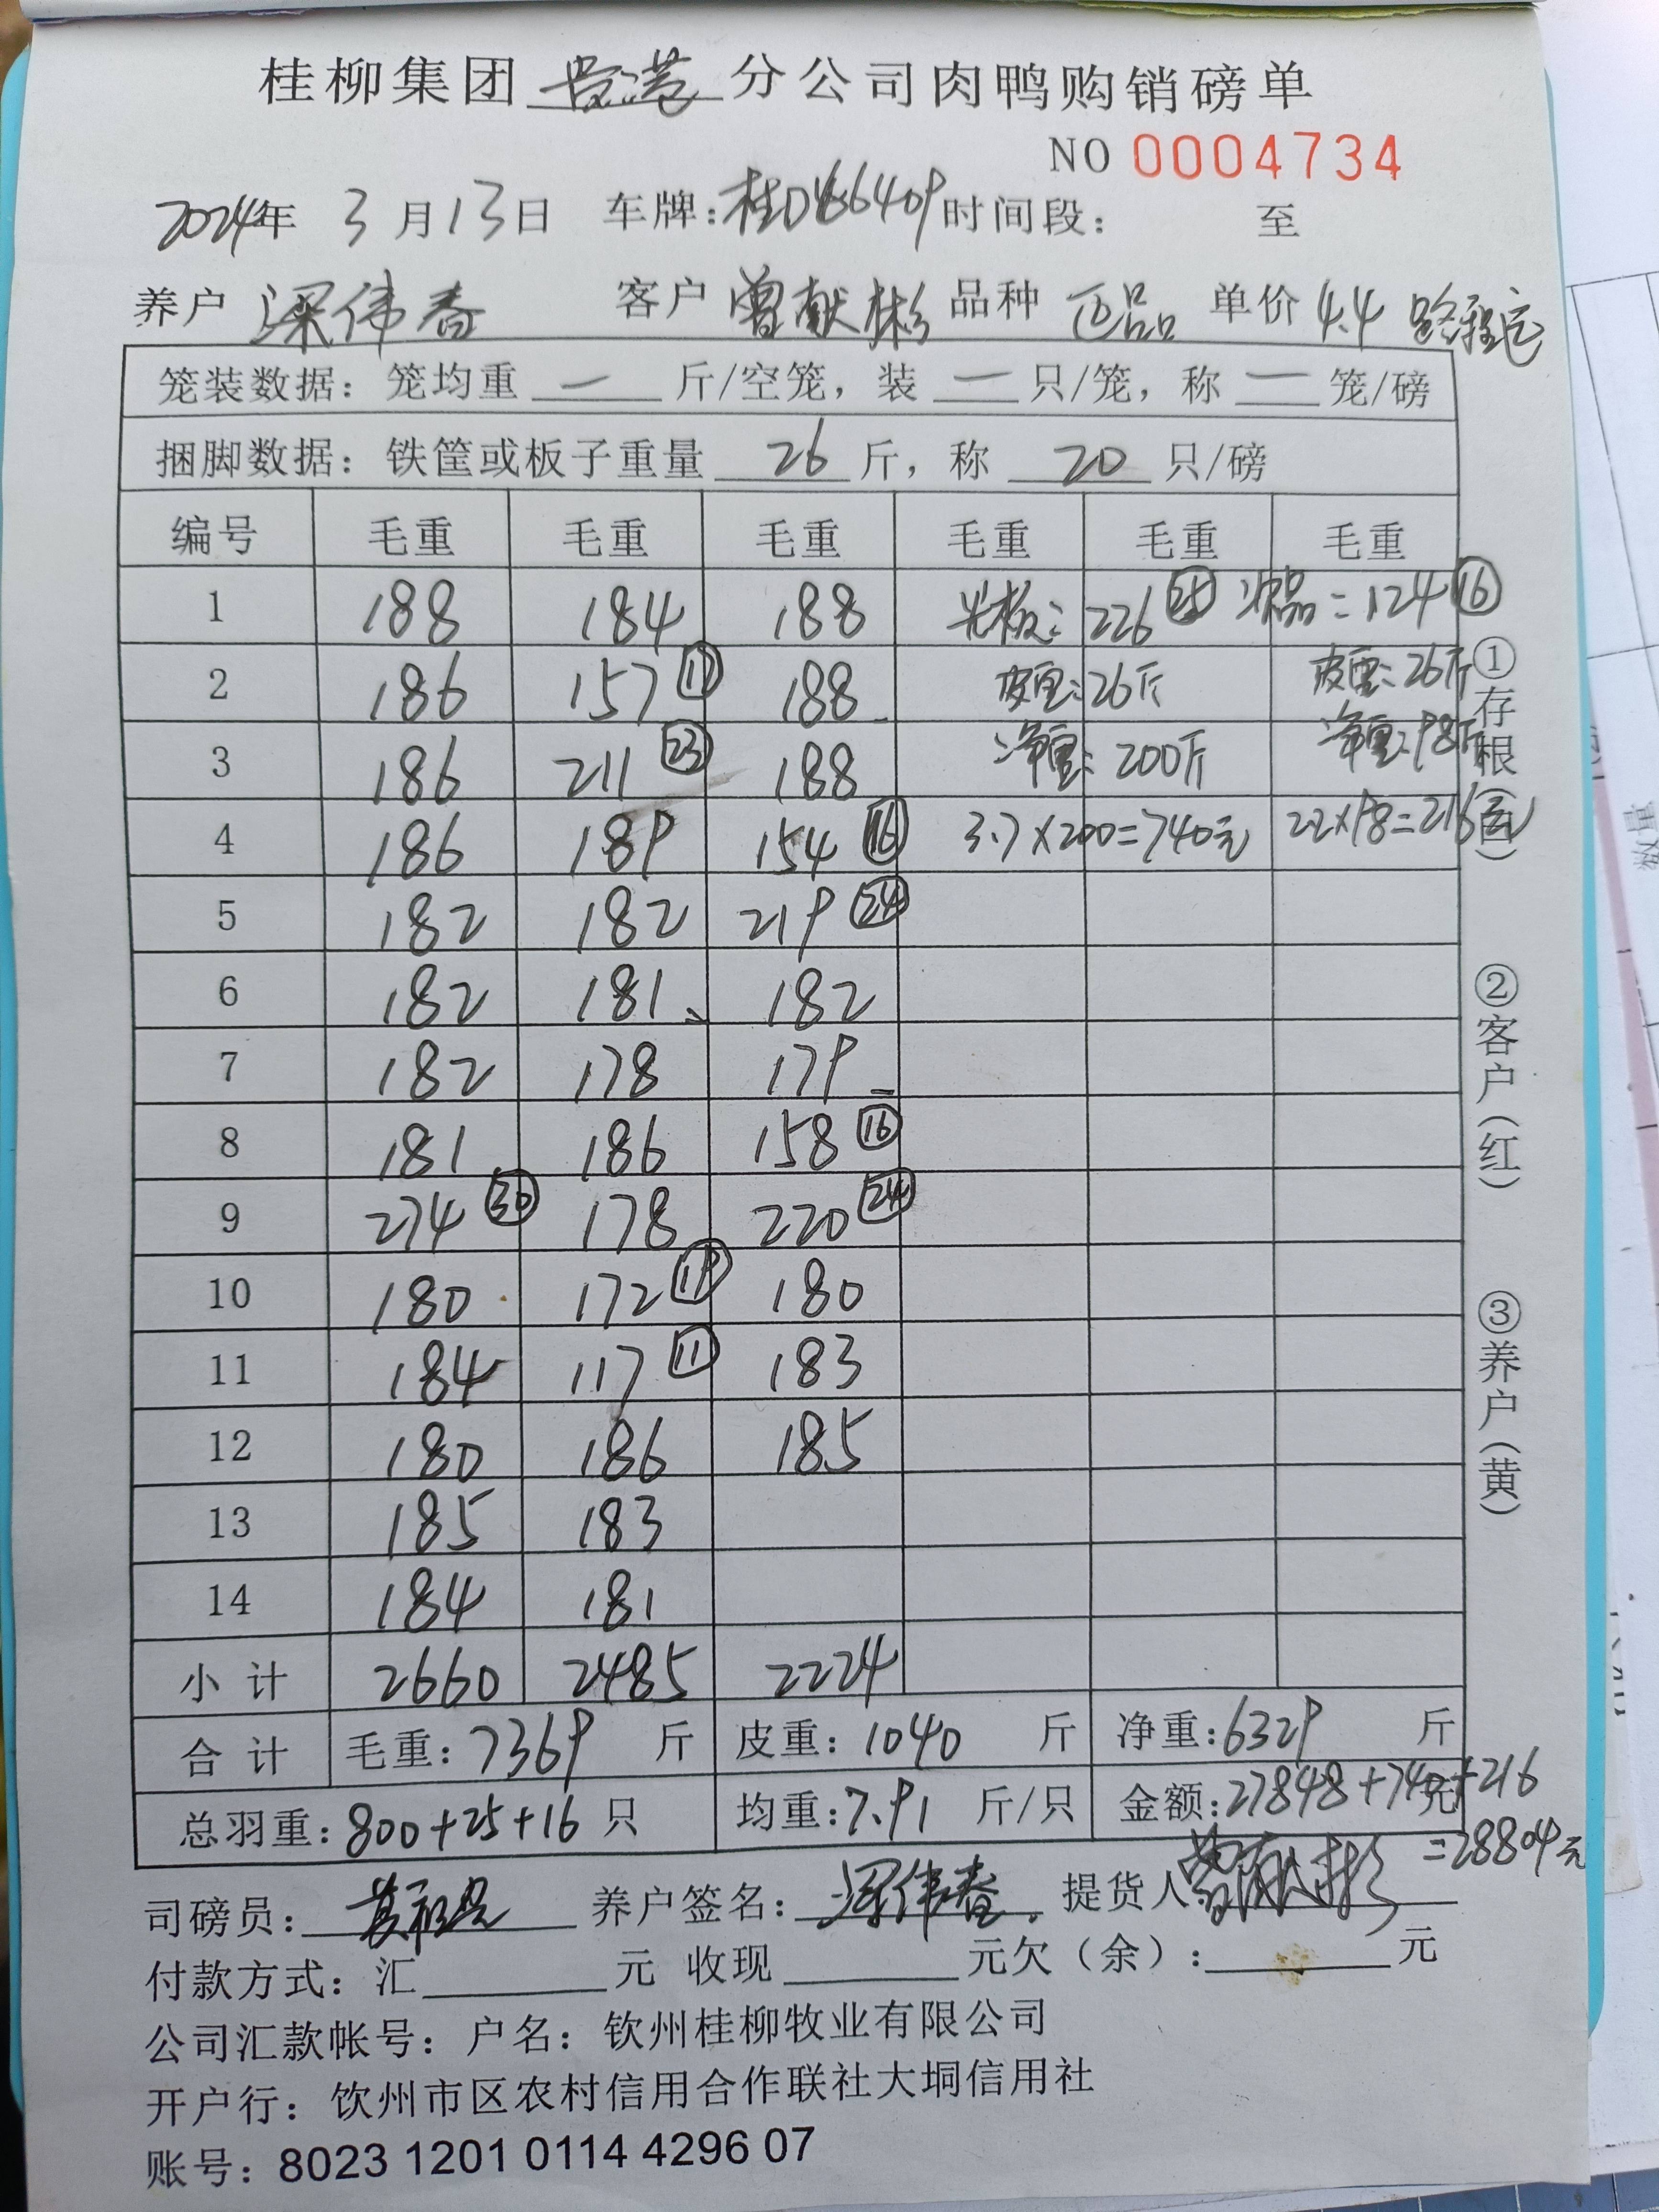 桂柳集团 贵港 分公司肉鸭购销磅单
NO 0004734
2024年 3 月 13 日 车牌: 时间段: 至
养户 梁伟春 客户 曾献彬 品种 正品 单价 4.4
笼装数据: 笼均重 — 斤/空笼, 装 — 只/笼, 称 — 笼/磅
捆脚数据: 铁筐或板子重量 26 斤, 称 20 只/磅
编号 毛重 毛重 毛重 毛重 毛重 毛重
1 188 184 188 光板: 226 ㉕ 次品=124 ⑯
2 186 157 ⑰ 188 皮重:26斤 皮重:26斤
3 186 211 ㉓ 188 净重:200斤 净重:98斤
4 186 189 154 ⑯ 3.7×200=740元 2.2×98=216元
5 182 182 219 ㉔
6 182 181 182
7 182 178 179
8 181 186 158 ⑯
9 274 ㉚ 178 220 ㉔
10 180 172 ⑲ 180
11 184 117 ⑪ 183
12 180 186 185
13 185 183
14 184 181
小计 2660 2485 2224
合计 毛重: 7369 斤 皮重: 1040 斤 净重: 6329 斤
总羽重: 800+25+16 只 均重: 7.91 斤/只 金额: 27848+740元+216
=28804元
司磅员: 养户签名: 梁伟春 提货人: 曾献彬
付款方式: 汇 元 收现 元欠(余): 元
公司汇款帐号: 户名: 钦州桂柳牧业有限公司
开户行: 钦州市区农村信用合作联社大垌信用社
账号: 8023 1201 0114 4296 07
①存根(白)
②客户(红)
③养户(黄)